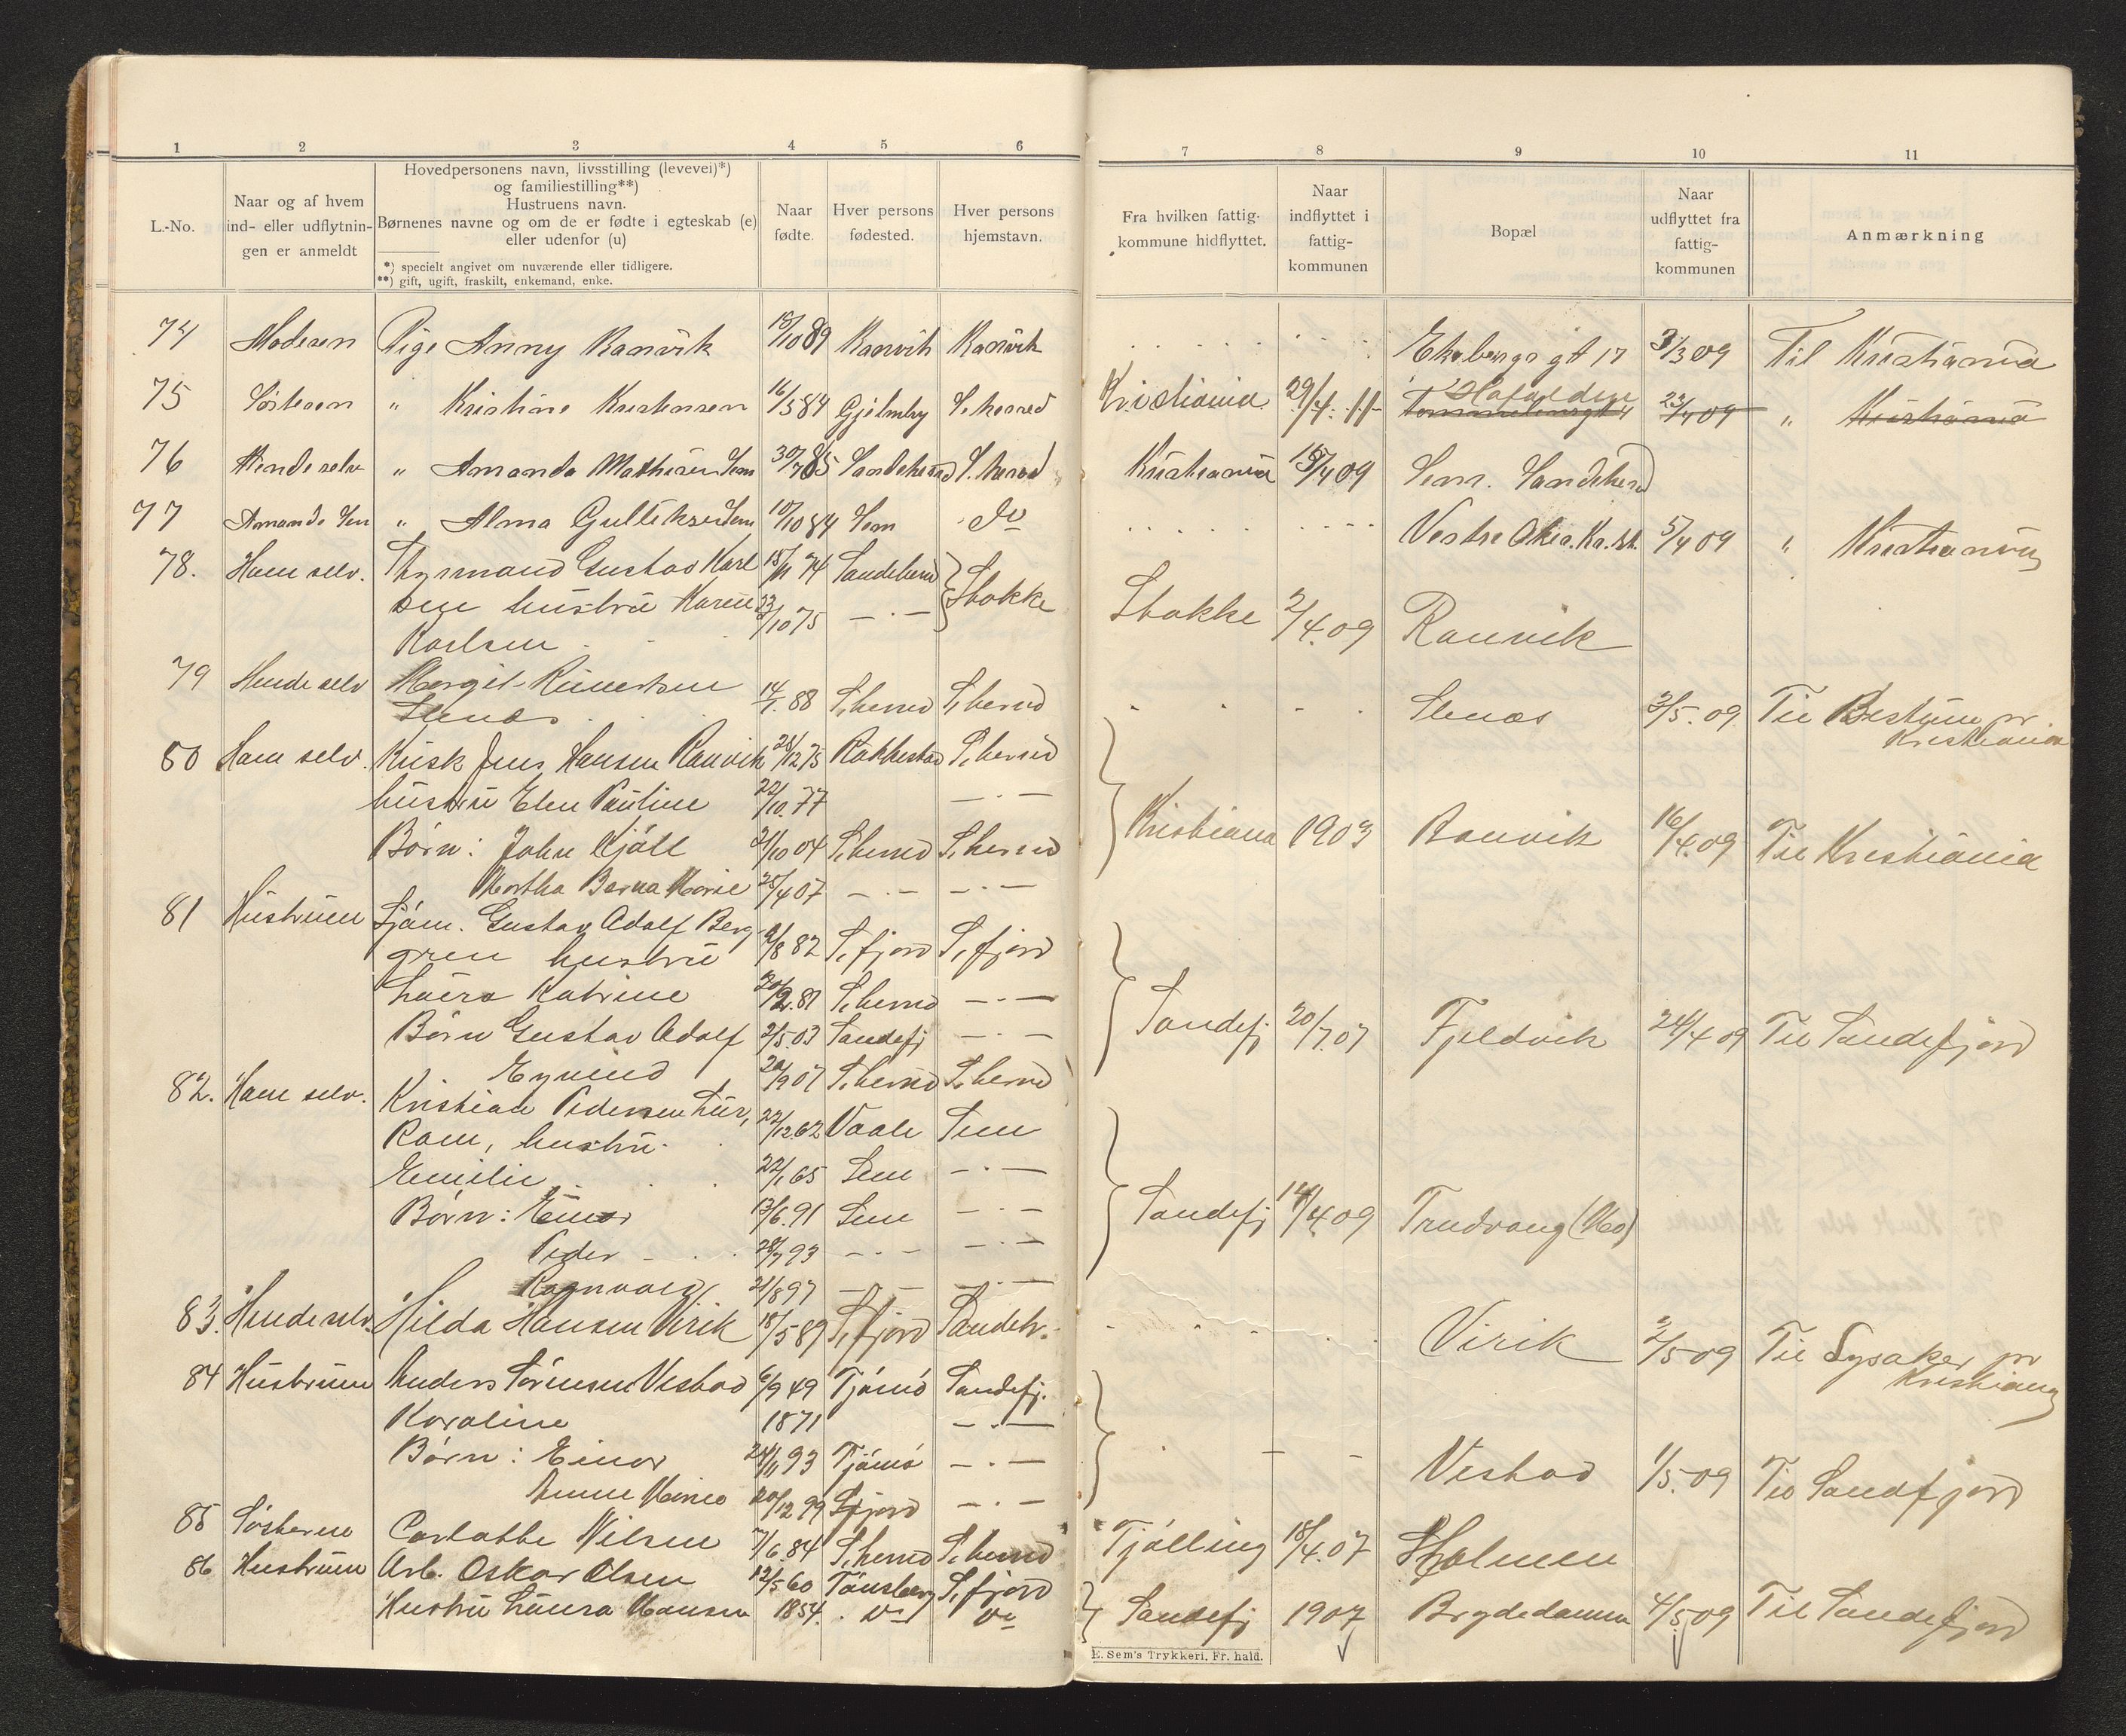 1 2 3 4 5 6
L.-No.
Naar og af hvem
ind- eller udflytnin-
gen er anmeldt
Hovedpersonens navn, livsstilling (levevei)*)
og familiestilling**)
Hustruens navn.
Børnenes navne og om de er fødte i egteskab (e)
eller udenfor (u)
*) specielt angivet om nuværende eller tidligere.
**) gift, ugift, fraskilt, enkemand, enke.
Naar
fødte.
Hver persons
fødested.
Hver persons
hjemstavn.
74 Moderen Pige Anny Ranvik 15/10 89 Ranvik Ranvik
75 Søsteren " Kristine Kristensen 16/5 84 S. herred
76 Hende selv " Amanda Mathisen Sem 30/7 85 Sandeherred S. herred
77 Amanda Sem " Alma Gulliksen Sem 10/10 84 Sem do
78. Ham selv. Gustav Karl 15/11 74 Sandeherred Stokke
hustru Karen 23/10 75 — . —
Karlsen
79 Hende selv Margit 14/1. 88 S. herred S. herred
Stenæs
80 Ham selv. Kusk Jens Hansen Ranvik 28/12 75 Rakkestad S. herred
hustru Elen Pauline 22/10. 77 — . —
Børn: John Kjøll 21/10 04 S. herred S. herred
Martha Berna Marie 25/4 07 — . — — . —
81 Hustruen Sjøm. Gustav Adolf Berg- 9/8 82 S. fjord S. fjord
gren hustru
Laura Katrine 20/2. 81 S. herred — . —
Børn Gustav Adolf 2/5. 03 Sandefj — . —
Eyvind 20/9 07 S. herred S. herred
82. Ham selv. Kristian Pedersen Lur,
Ram, hustru. 22/12 62 Vaale Sem
Emilie 22/1 65 Sem — . —
Børn: Einar 13/6. 91 Sem — . —
Peder 28/7 93 — . — — . —
Ragnvald 21/8 97 — . — — . —
83. Hende selv. Hilda Hansen Virik 18/5 89 S. fjord Sandeh.
84 Hustruen Anders Sørensen Vestad 6/9 49 Tjømø Sandefj.
Karoline 1871 — . —
Børn: Einar 24/11 93 Tjømø — . —
Anne Marie 20/12 99 S. fjord — . —
85 Søsteren Carlotte Nilsen 7/6. 84 S. herred S. herred
86 Hustruen Arb. Oskar Olsen 12/5 60 Tønsberg S. fjord
Hustru Laura Hansen 1854. do do
7 8 9 10 11
Fra hvilken fattig-
kommune hidflyttet.
Naar
indflyttet i
fattig-
kommunen
Bopæl
Naar
udflyttet fra
fattig-
kommunen
Anmærkning
Ekebergs gt 17 3/3 09 Til Kristiania
Kristiania 29/4. 11 23/4 09 " Kristiania
Kristiania 15/4 09 Sem. Sandeherred
Vestre Aker. Kr. 5/4 09 " Kristiania
Stokke 2/4. 09 Ranvik
Stenæs 3/5. 09 Til Bestum pr.
Kristiania
Kristiania 1903 Ranvik 16/4. 09 Til Kristiania
Sandefj 20/7. 07 Fjeldvik 24/4 09 Til Sandefjord
Sandefj 14/4. 09 Trudvang (Mo)
Virik 2/5 09 Til Lysaker pr
Kristiania
Vestad 1/5. 09 Til Sandefjord
Tjølling 18/4. 07 Holmen
Sandefj 1907 Brydedammen 4/5 09 Til Sandefjord
E. Sem's Trykkeri, Fr. hald.